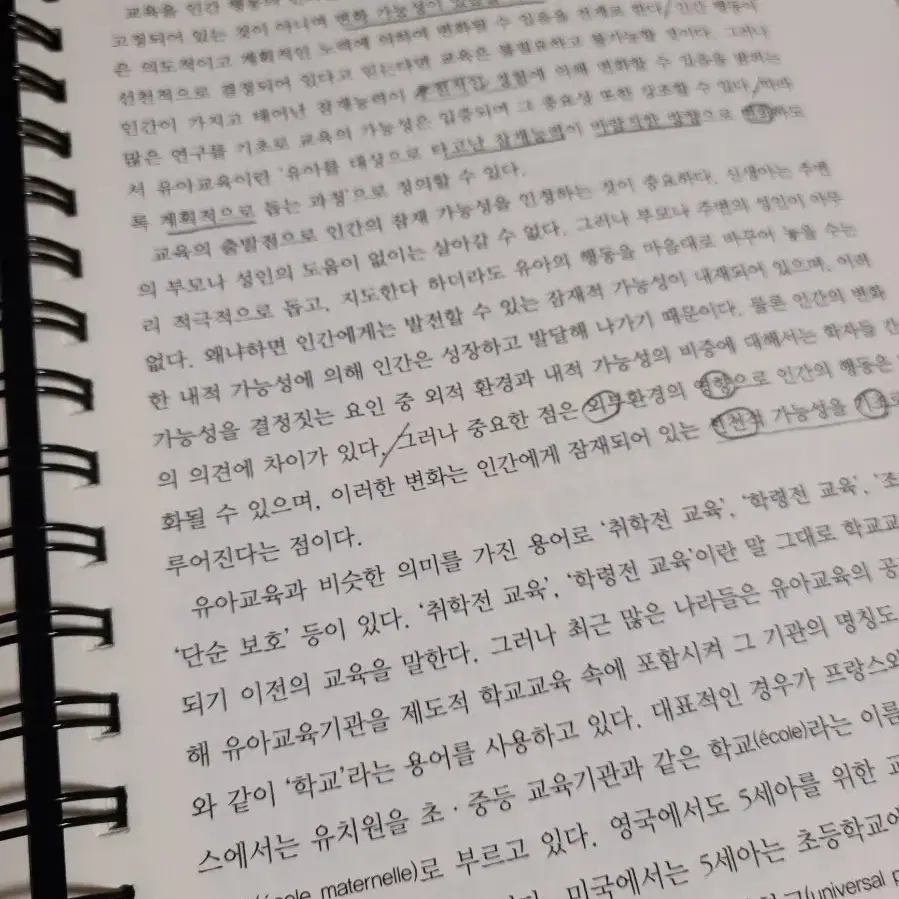 교육을 인간 행동의
고정되어 있는 것이 아니며 변화 가능성이
은 의도적이고 계획적인 노력에 의하여 변화될 수 있음을 전제로 한다/인간 행동이
선천적으로 결정되어 있다고 믿는다면 교육은 불필요하고 불가능할 것이다. 그러나
인간이 가지고 태어난 잠재능력이 후천적인 경험에 의해 변화할 수 있음을 밝히는
많은 연구를 기초로 교육의 가능성은 입증되며 그 중요성 또한 강조할 수 있다/따라
서 유아교육이란 '유아를 대상으로 타고난 잠재능력이 바람직한 방향으로 변화하도
록 계획적으로 돕는 과정'으로 정의할 수 있다.
교육의 출발점으로 인간의 잠재 가능성을 인정하는 것이 중요하다. 신생아는 주변
의 부모나 성인의 도움이 없이는 살아갈 수 없다. 그러나 부모나 주변의 성인이 아무
리 적극적으로 돕고, 지도한다 하더라도 유아의 행동을 마음대로 바꾸어 놓을 수는
없다. 왜냐하면 인간에게는 발전할 수 있는 잠재적 가능성이 내재되어 있으며, 이러
한 내적 가능성에 의해 인간은 성장하고 발달해 나가기 때문이다. 물론 인간의 변화
가능성을 결정짓는 요인 중 외적 환경과 내적 가능성의 비중에 대해서는 학자들 간
의 의견에 차이가 있다/그러나 중요한 점은 외부환경의 영향으로 인간의 행동은
화될 수 있으며, 이러한 변화는 인간에게 잠재되어 있는 선천적 가능성을 기초로
루어진다는 점이다.
유아교육과 비슷한 의미를 가진 용어로 '취학전 교육', '학령전 교육', '조
'단순 보호' 등이 있다. '취학전 교육', '학령전 교육'이란 말 그대로 학교교
되기 이전의 교육을 말한다. 그러나 최근 많은 나라들은 유아교육의 공
해 유아교육기관을 제도적 학교교육 속에 포함시켜 그 기관의 명칭도
와 같이 '학교'라는 용어를 사용하고 있다. 대표적인 경우가 프랑스와
스에서는 유치원을 초·중등 교육기관과 같은 학교(école)라는 이름
maternelle)로 부르고 있다. 영국에서도 5세아를 위한 교
미국에서는 5세아는 초등학교에
(universal p